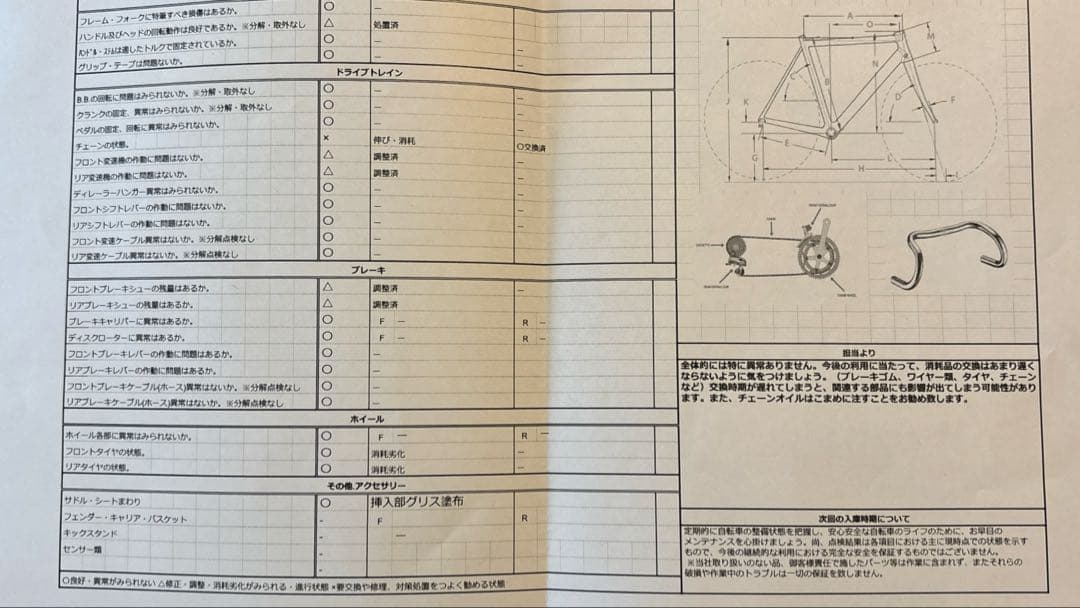 フレーム・フォークに特筆すべき損傷はあるか。 ○ ―
ハンドル及びヘッドの回転動作は良好であるか。※分解・取外なし △ 処置済
ﾊﾝﾄﾞﾙ・ｽﾃﾑは適したトルクで固定されているか。 ○ ― ―
グリップ・テープは問題ないか。 ○ ― ―
ドライブトレイン
B.B.の回転に問題はみられないか。※分解・取外なし ○ ― ―
クランクの固定、異常はみられないか。※分解・取外なし ○ ― ―
ペダルの固定、回転に異常はみられないか。 ○ ― ―
チェーンの状態。 × 伸び・消耗 ○交換済
フロント変速機の作動に問題はないか。 △ 調整済 ―
リア変速機の作動に問題はないか。 △ 調整済 ―
ディレーラーハンガー異常はみられないか。 ○ ― ―
フロントシフトレバーの作動に問題はないか。 ○ ― ―
リアシフトレバーの作動に問題はないか。 ○ ― ―
フロント変速ケーブル異常はないか。※分解点検なし ○ ― ―
リア変速ケーブル異常はないか。※分解点検なし ○ ― ―
ブレーキ
フロントブレーキシューの残量はあるか。 △ 調整済 ―
リアブレーキシューの残量はあるか。 △ 調整済
ブレーキキャリパーに異常はあるか。 ○ F ― R ―
ディスクローターに異常はあるか。 ○ F ― R ―
フロントブレーキレバーの作動に問題はあるか。 ○ ― ―
リアブレーキレバーの作動に問題はあるか。 ○ ― ―
フロントブレーキケーブル(ホース)異常はないか。※分解点検なし ○ ― ―
リアブレーキケーブル(ホース)異常はないか。※分解点検なし ○ ― ―
ホイール
ホイール各部に異常はみられないか。 ○ F ― R ―
フロントタイヤの状態。 ○ 消耗劣化 ―
リアタイヤの状態。 ○ 消耗劣化 ―
その他.アクセサリー
サドル・シートまわり ○ 挿入部グリス塗布
フェンダー・キャリア・バスケット - F R
キックスタンド - ―
センサー類 -
-
○良好・異常がみられない △修正・調整・消耗劣化がみられる・進行状態 ×要交換や修理、対策処置をつよく勧める状態
A
O
M
N
C
B
D
F
J
K
E
G
L
H
I
担当より
全体的には特に異常ありません。今後の利用に当たって、消耗品の交換はあまり遅く
ならないように気をつけましょう。（ブレーキゴム、ワイヤー類、タイヤ、チェーン
など）交換時期が遅れてしまうと、関連する部品にも影響が出てしまう可能性があり
ます。また、チェーンオイルはこまめに注すことをお勧め致します。
次回の入庫時期について
定期的に自転車の整備状態を把握し、安心安全な自転車のライフのために、お早目の
メンテナンスを心掛けましょう。尚、点検結果は各項目における主に現時点での状態を示す
もので、今後の継続的な利用における完全な安全を保証するものではございません。
※当社取り扱いのない品、御客様責任で施したパーツ等は作業に含まれず、またそれらの
破損や作業中のトラブルは一切の保証を致しません。